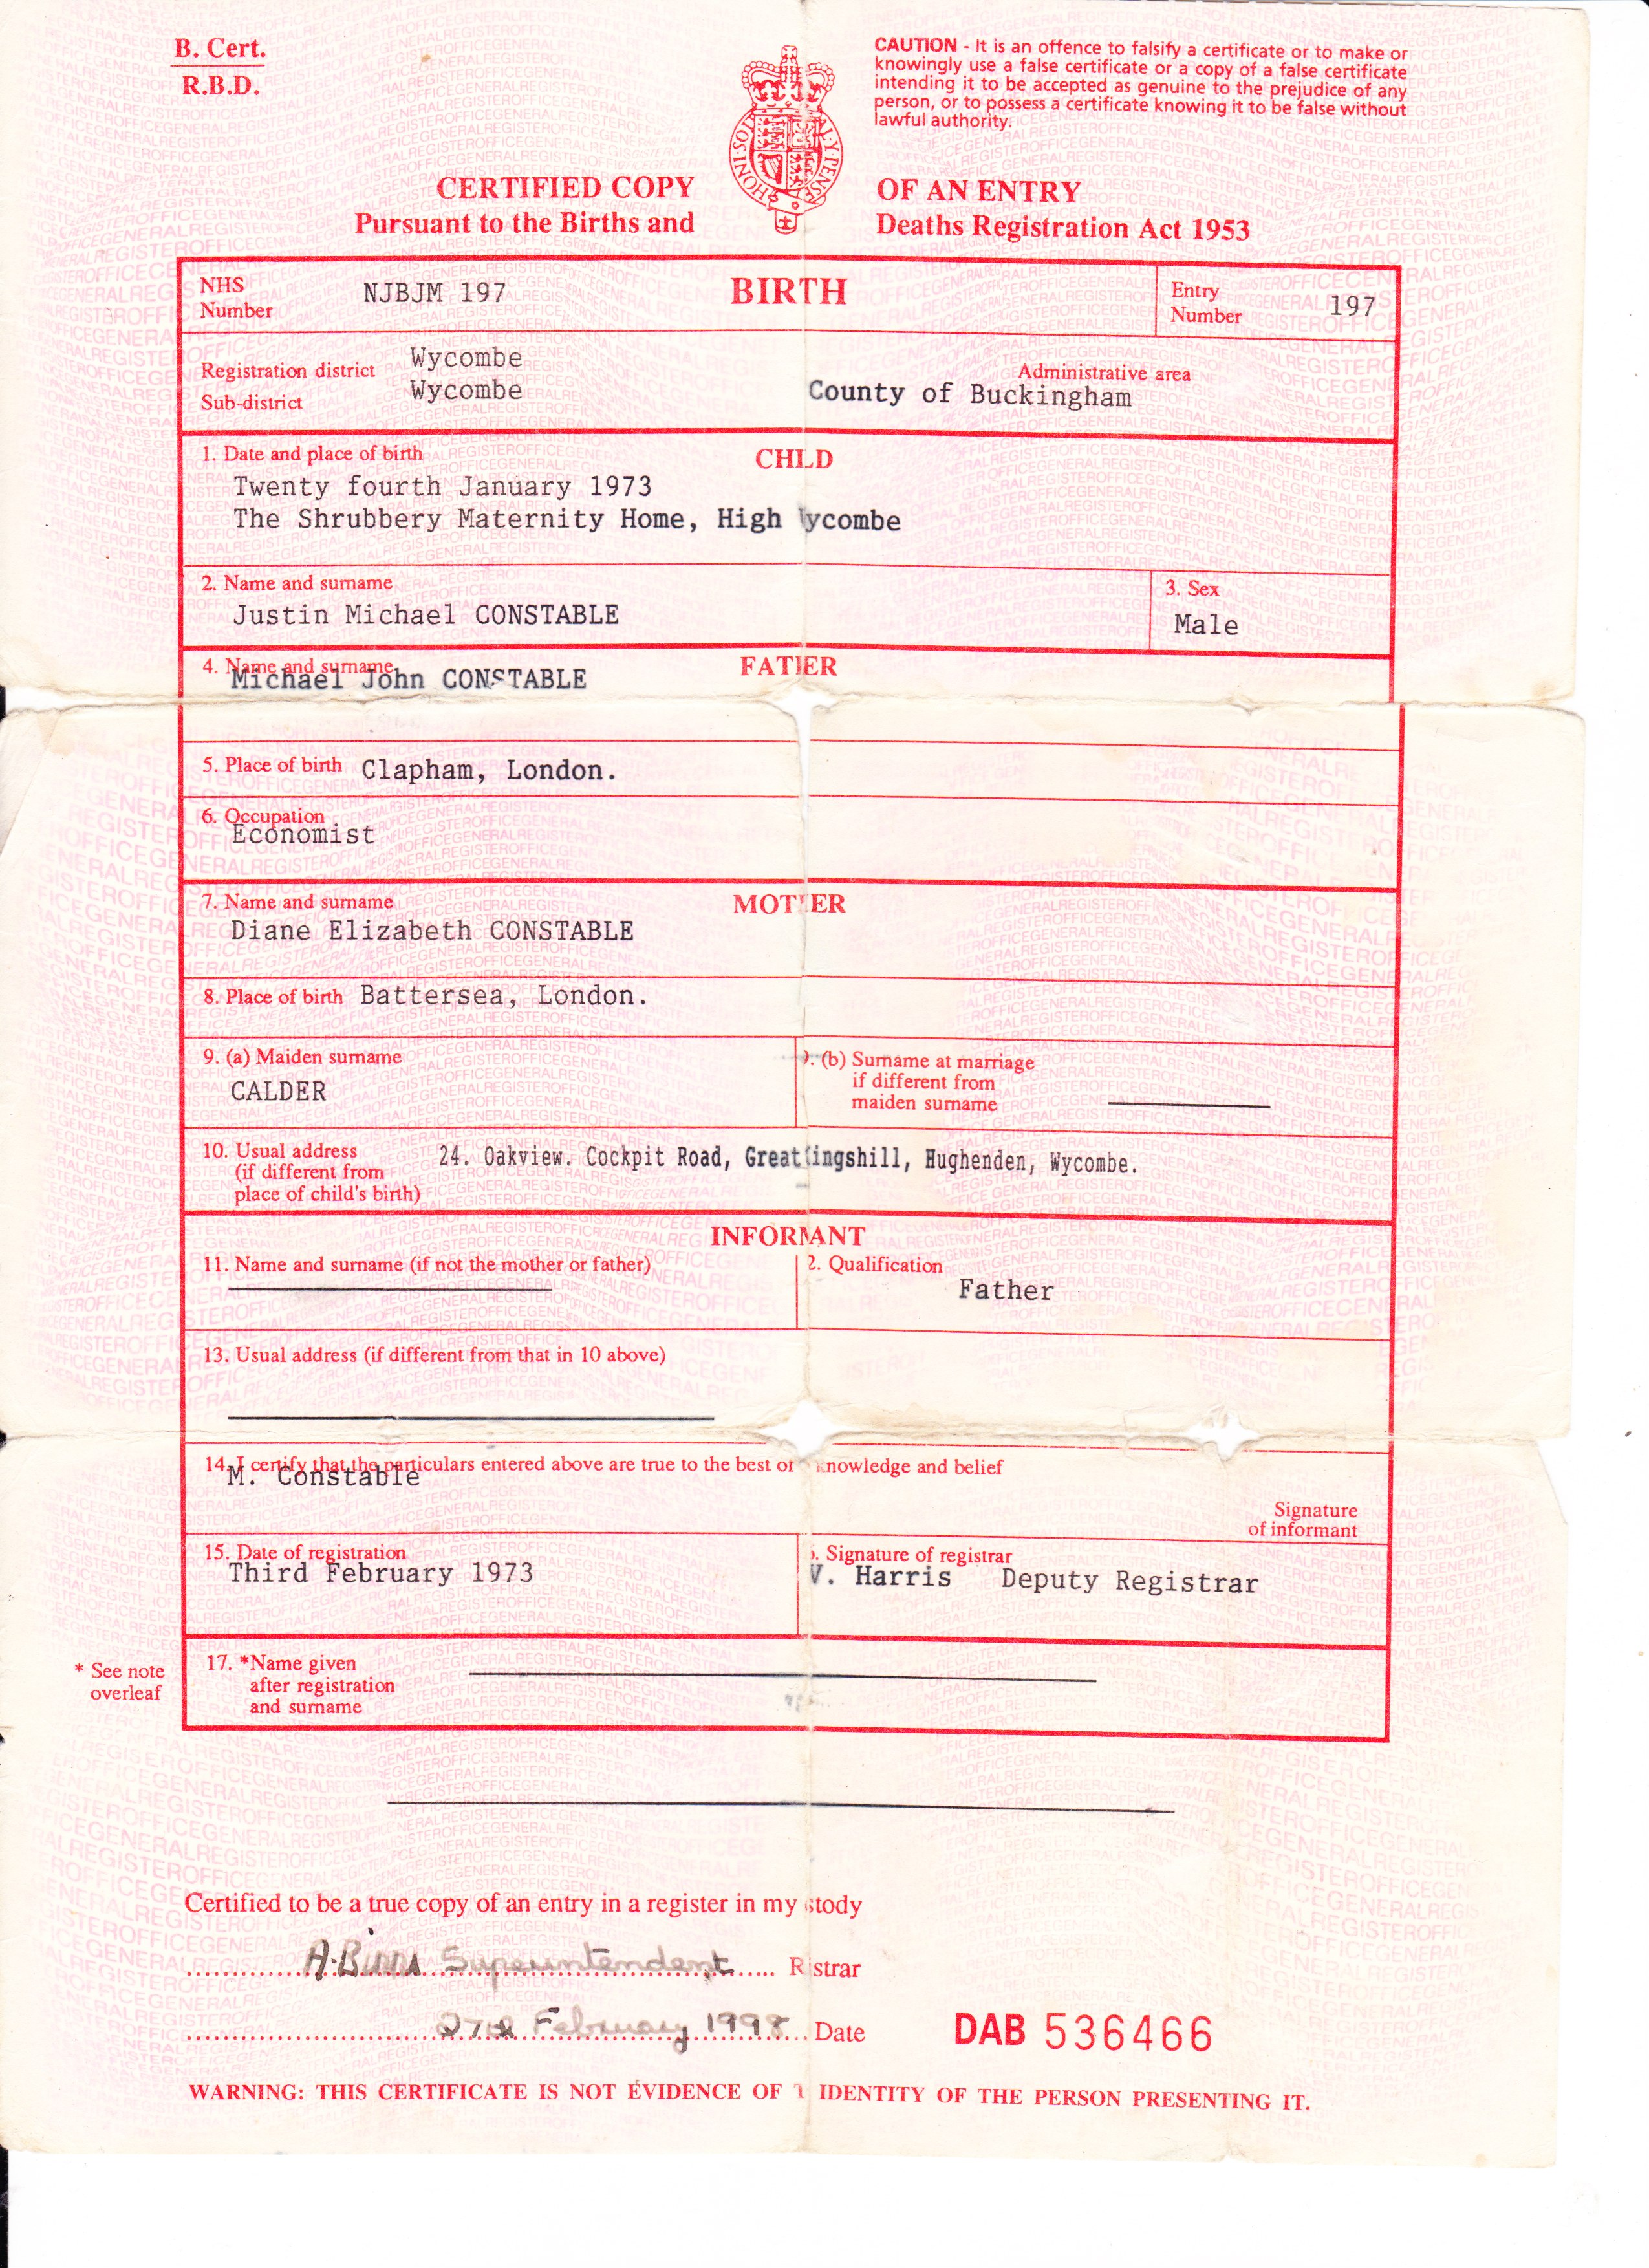 B. Cert.
R.B.D.
CAUTION - It is an offence to falsify a certificate or to make or
knowingly use a false certificate or a copy of a false certificate
intending it to be accepted as genuine to the prejudice of any
person, or to possess a certificate knowing it to be false without
lawful authority.
CERTIFIED COPY OF AN ENTRY
Pursuant to the Births and Deaths Registration Act 1953
NHS Number NJBJM 197
BIRTH
Entry Number 197
Registration district Wycombe
Sub-district Wycombe
Administrative area
County of Buckingham
CHLD
1. Date and place of birth
Twenty fourth January 1973
The Shrubbery Maternity Home, High ycombe
2. Name and surname
Justin Michael CONSTABLE
3. Sex
Male
FATER
4. Name and surname
Michael John CONSTABLE
5. Place of birth Clapham, London.
6. Occupation
Economist
MOTER
7. Name and surname
Diane Elizabeth CONSTABLE
8. Place of birth Battersea, London.
9. (a) Maiden surname
CALDER
(b) Surname at marriage
if different from
maiden surname
10. Usual address
(if different from
place of child's birth)
24. Oakview. Cockpit Road, Great ingshill, Hughenden, Wycombe.
INFORMANT
11. Name and surname (if not the mother or father)
2. Qualification
Father
13. Usual address (if different from that in 10 above)
14. I certify that the particulars entered above are true to the best of nowledge and belief
M. Constable
Signature
of informant
15. Date of registration
Third February 1973
. Signature of registrar
V. Harris Deputy Registrar
* See note
overleaf
17. *Name given
after registration
and surname
Certified to be a true copy of an entry in a register in my stody
Superintendent R strar
February 1998 Date
DAB 536466
WARNING: THIS CERTIFICATE IS NOT EVIDENCE OF IDENTITY OF THE PERSON PRESENTING IT.